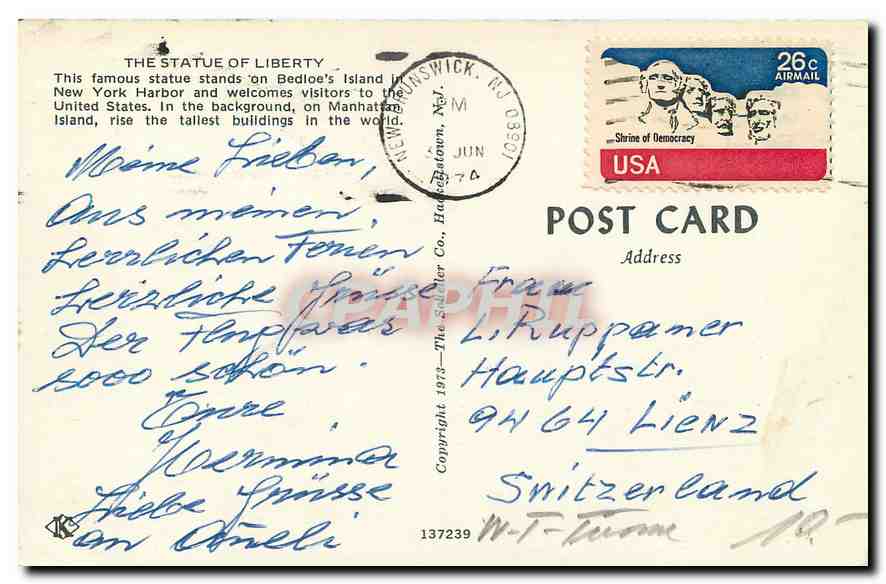 THE STATUE OF LIBERTY
This famous statue stands on Bedloe's Island in
New York Harbor and welcomes visitors to the
United States. In the background, on Manhattan
Island, rise the tallest buildings in the world.
Meine Lieben,
Aus meinen
herrlichen Ferien
herzliche Grüsse
Der Flug war
sooo schön.
Eure
Hermina
Liebe Grüsse
an
137239
Copyright 1973—The Scheller Co., Hackettstown, N.J.
NEW BRUNSWICK, NJ 08901
PM
JUN
1974
26c
AIRMAIL
Shrine of Democracy
USA
POST CARD
Address
Frau
L. Ruppaner
Hauptstr.
9464 Lienz
Switzerland
W-T-
10.-
CPAPHIL
K